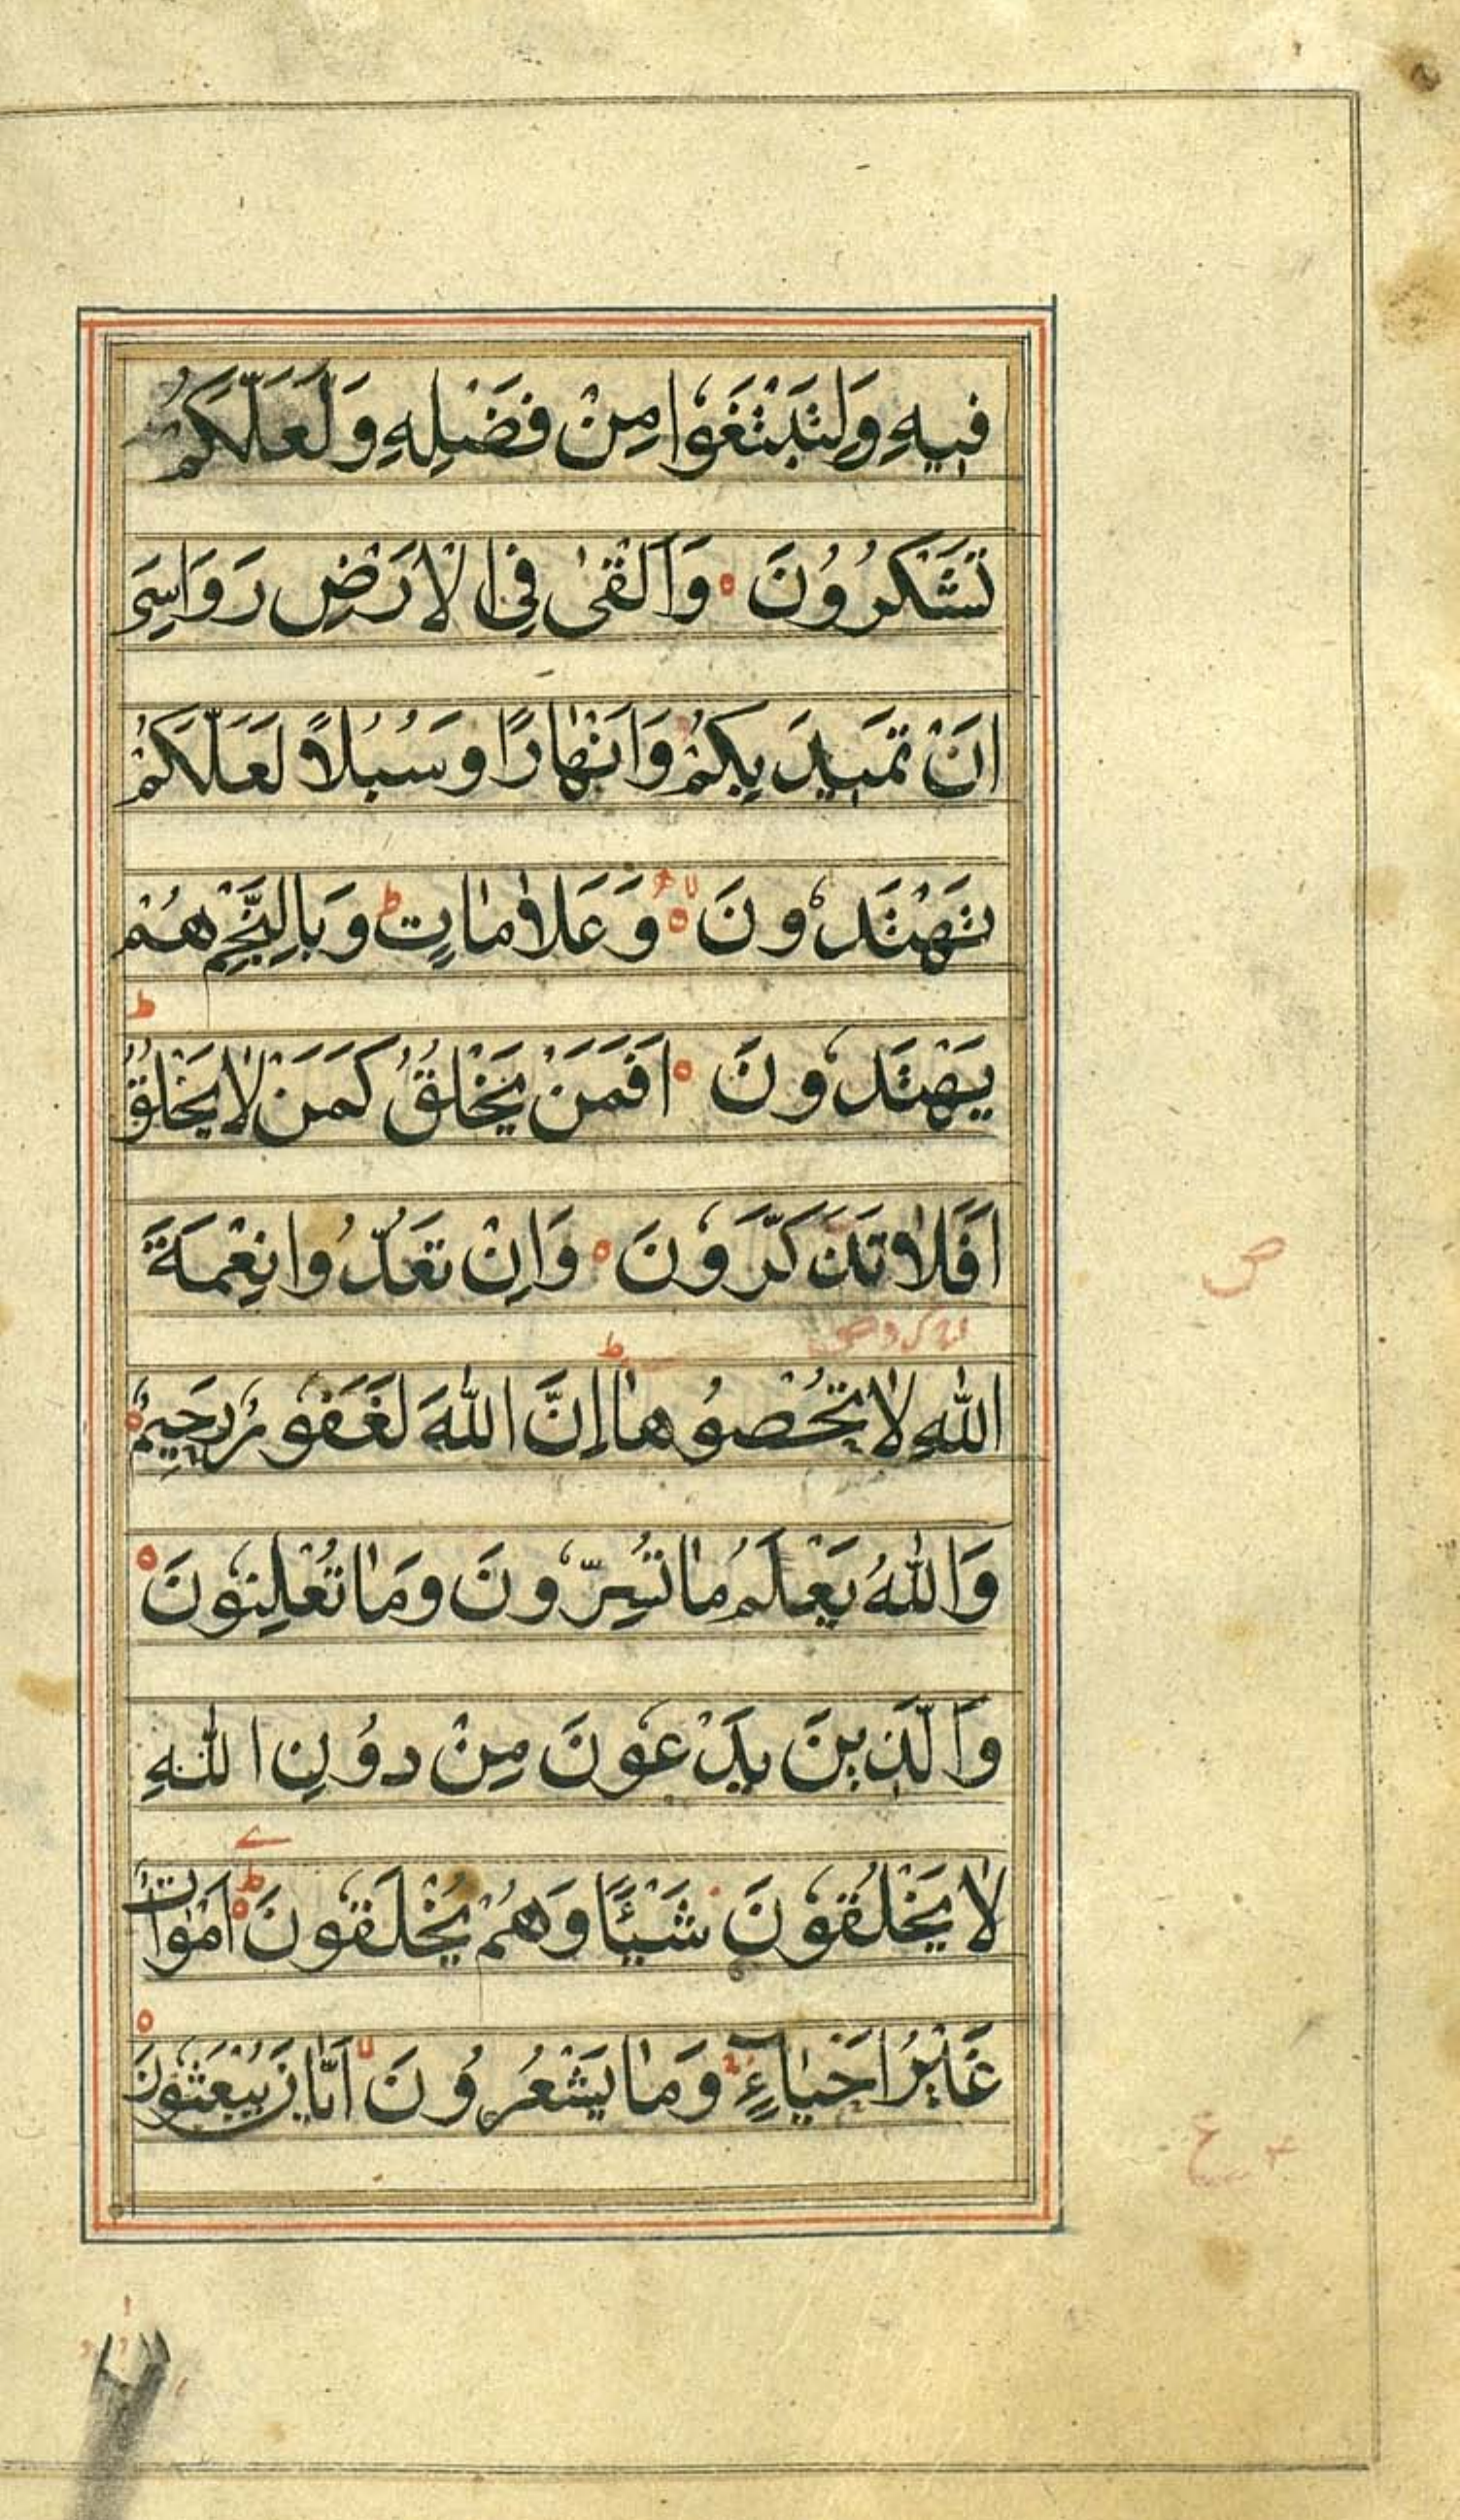 فِيهِ وَلِتَبْتَغُوا مِنْ فَضْلِهِ وَلَعَلَّكُمْ
تَشْكُرُونَ ه وَاَلْقٰى فِى الْاَرْضِ رَوَاسِىَ
اَنْ تَمِيدَ بِكُمْ وَاَنْهَارًا وَسُبُلًا لَعَلَّكُمْ
تَهْتَدُونَ ه وَعَلَامَاتٍ ط وَبِالنَّجْمِ هُمْ
يَهْتَدُونَ ه اَفَمَنْ يَخْلُقُ كَمَنْ لَا يَخْلُقُ ط
اَفَلَا تَذَكَّرُونَ ه وَاِنْ تَعُدُّوا نِعْمَةَ
اللّٰهِ لَا تُحْصُوهَا ط اِنَّ اللّٰهَ لَغَفُورٌ رَحِيمٌ ه
وَاللّٰهُ يَعْلَمُ مَا تُسِرُّونَ وَمَا تُعْلِنُونَ ه
وَالَّذِينَ يَدْعُونَ مِنْ دُونِ اللّٰهِ
لَا يَخْلُقُونَ شَيْئًا وَهُمْ يُخْلَقُونَ ه ط اَمْوَاتٌ
غَيْرُ اَحْيَاءٍ وَمَا يَشْعُرُونَ لا اَيَّانَ يُبْعَثُونَ ه
ص
ع